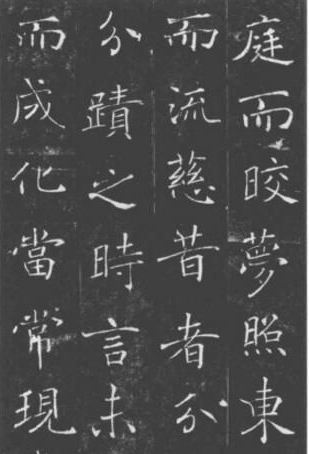 庭而晈夢照東
而流慈昔者分
分蹟之時言未
而成化當常現